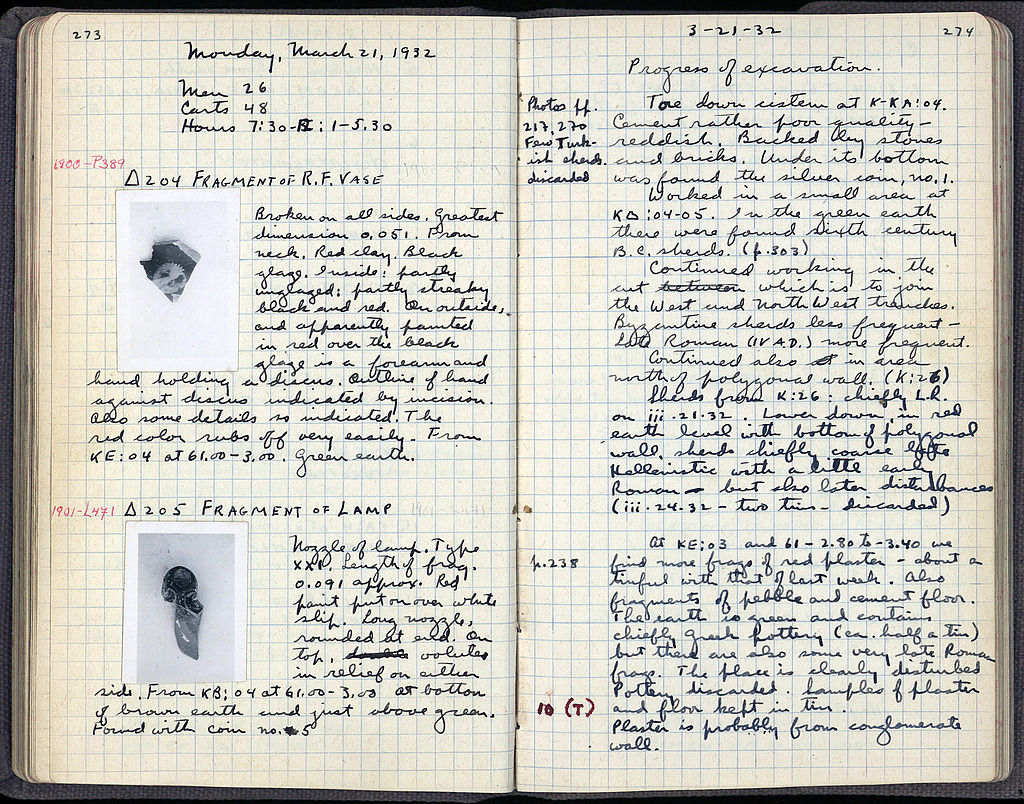 273
Monday, March 21, 1932
Men 26
Carts 48
Hours 7:30-12 : 1-5.30
1900-P389
Δ204 FRAGMENT OF R.F. VASE
Broken on all sides. Greatest
dimension 0.051. From
neck. Red clay. Black
glaze. Inside: partly
unglazed; partly streaky
black and red. On outside,
and apparently painted
in red over the black
glaze is a forearm and
hand holding a discus. Outline of hand
against discus indicated by incision.
Also some details so indicated. The
red color rubs off very easily. From
KE:04 at 61.00-3.00. Green earth.
1901-L471
Δ205 FRAGMENT OF LAMP
Nozzle of lamp. Type
XXI. Length of frag.
0.091 approx. Red
paint put on over white
slip. Long nozzle,
rounded at end. On
top, double volutes
in relief on either
side. From KB:04 at 61.00-3.00 at bottom
of brown earth and just above green.
Found with coin no. 5
3-21-32
274
Progress of excavation.
Photos pp.
217, 270
Few Turk-
ish sherds.
discarded
Tore down cistern at K-KA:04.
Cement rather poor quality-
reddish. Backed by stones
and bricks. Under its bottom
was found the silver coin, no. 1.
Worked in a small area at
KΔ:04-05. In the green earth
there were found sixth century
B.C. sherds. (p.303)
Continued working in the
cut between which is to join
the West and North West trenches.
Byzantine sherds less frequent-
Late Roman (IV A.D.) more frequent.
Continued also in area
north of polygonal wall. (K:26)
Sherds from K:26: chiefly L.R.
on iii.21.32. Lower down, in red
earth level with bottom of polygonal
wall, sherds chiefly coarse
Hellenistic with a little early
Roman - but also later disturbances
(iii.24.32 - two tins - discarded)
p.238
At KE:03 and 61-2.80 to -3.40 we
find more frags of red plaster - about a
tinful with that of last week. Also
fragments of pebble and cement floor.
The earth is green and contains
chiefly Greek pottery (ca. half a tin)
but there are also some very late Roman
frags. The place is clearly disturbed
Pottery discarded. Samples of plaster
and floor kept in tin.
10 (T)
Plaster is probably from conglomerate
wall.